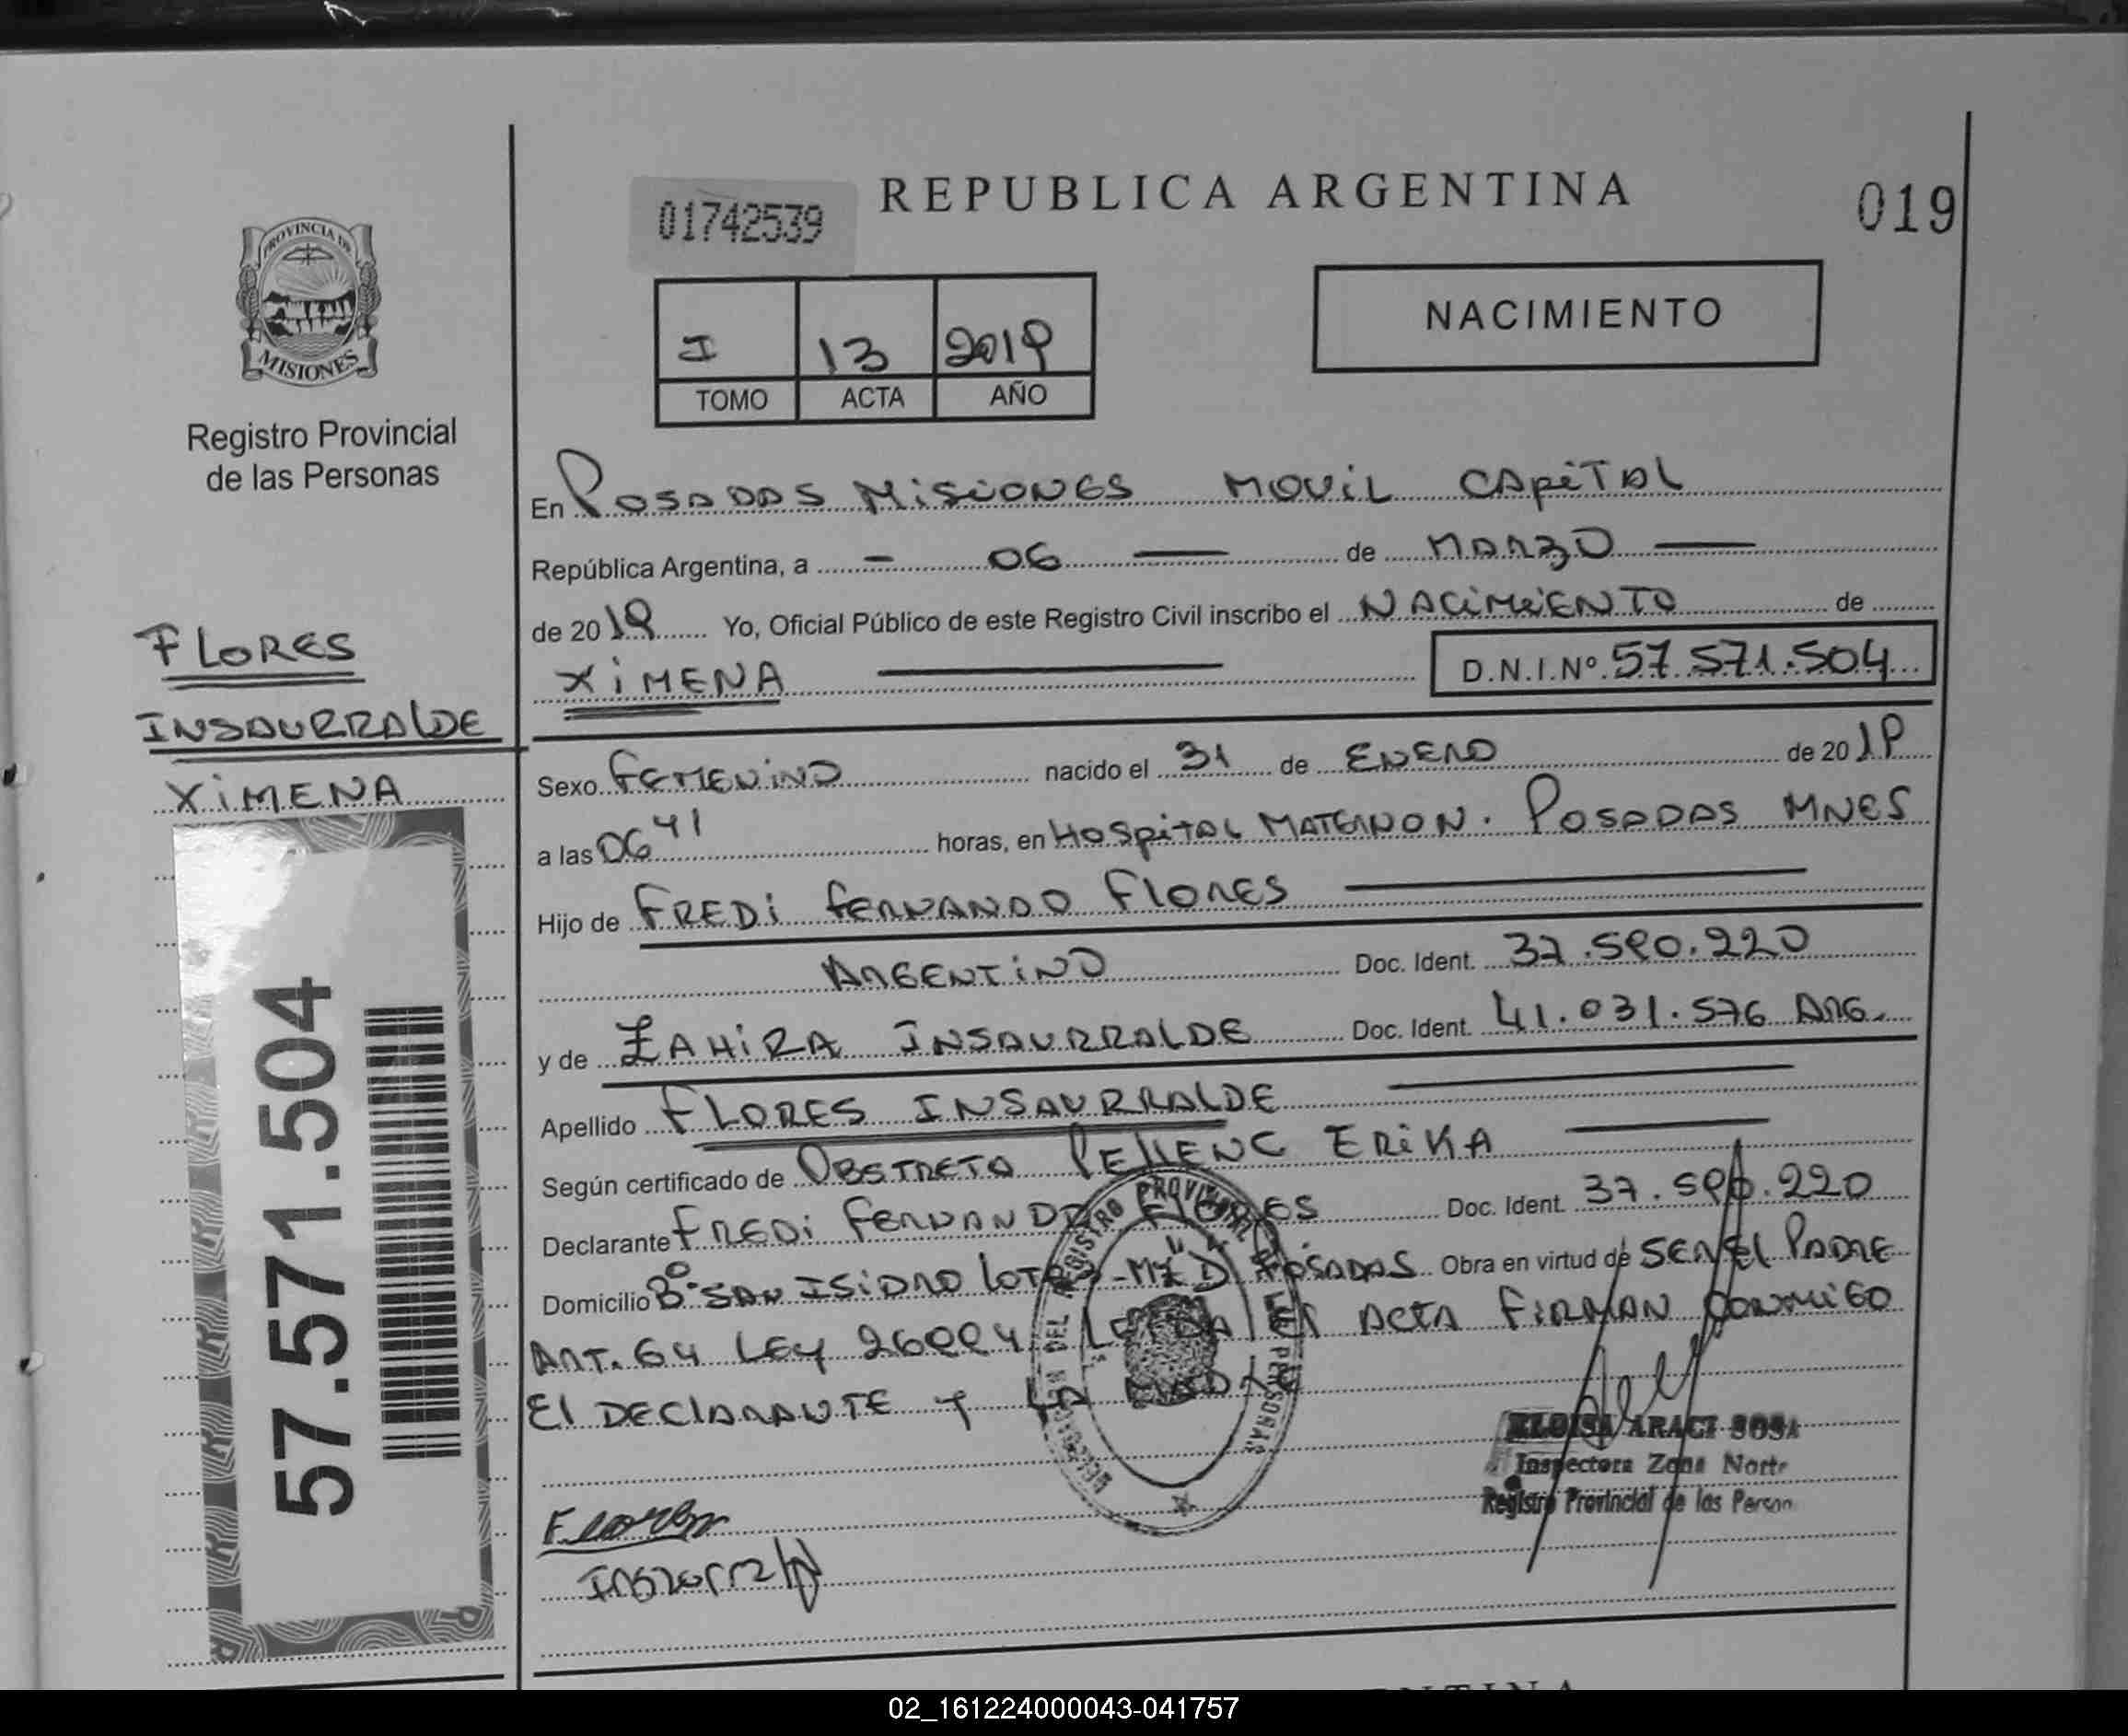 PROVINCIA DE
MISIONES
Registro Provincial
de las Personas
FLORES
INSAURRALDE
XIMENA
57.571.504
01742539
REPUBLICA ARGENTINA
019
I 13 2019
TOMO ACTA AÑO
NACIMIENTO
En POSADAS MISIONES MOVIL CAPITAL
República Argentina, a - 06 — de MARZO —
de 2019 Yo, Oficial Público de este Registro Civil inscribo el NACIMIENTO de
XIMENA —
D.N.I.Nº 57.571.504
Sexo FEMENINO nacido el 31 de ENERO de 2019
a las 06 41 horas, en HOSPITAL MATERNON. POSADAS MNES
Hijo de FREDI FERNANDO FLORES —
ARGENTINO Doc. Ident. 37.590.220
y de ZAHIRA INSAURRALDE Doc. Ident. 41.031.576 ARG.
Apellido FLORES INSAURRALDE —
Según certificado de OBSTRETA PELLENC ERIKA —
Declarante FREDI FERNANDO FLORES Doc. Ident. 37.590.220
Domicilio Bº SAN ISIDRO LOTE MZ "D" POSADAS Obra en virtud de SER EL PADRE
ART. 64 LEY 26994 LEIDA EL ACTA FIRMAN CONMIGO
El DECLARANTE Y LA MADRE
ELOISA ARACI SOSA
Inspectora Zona Norte
Registro Provincial de las Person
02_161224000043-041757